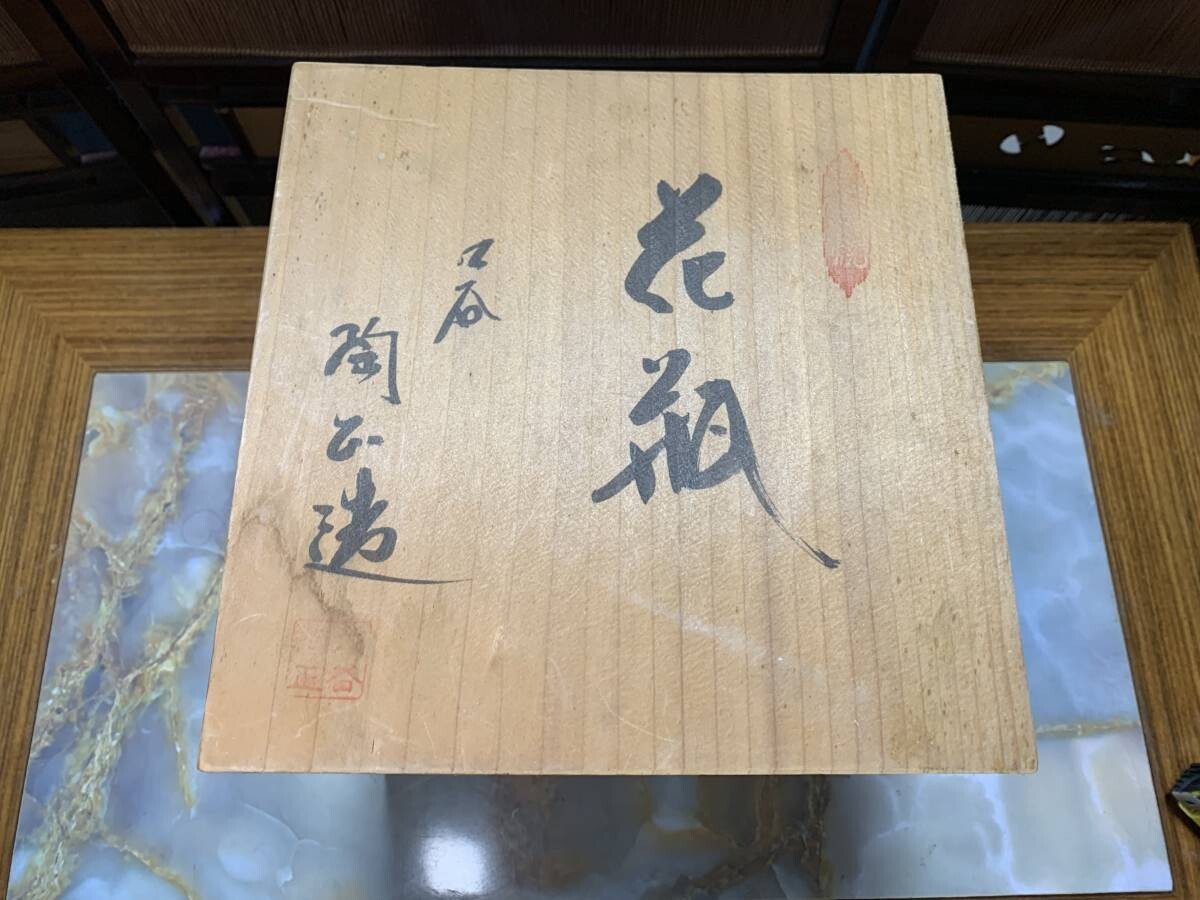 花瓶
九谷
陶正造
谷
正